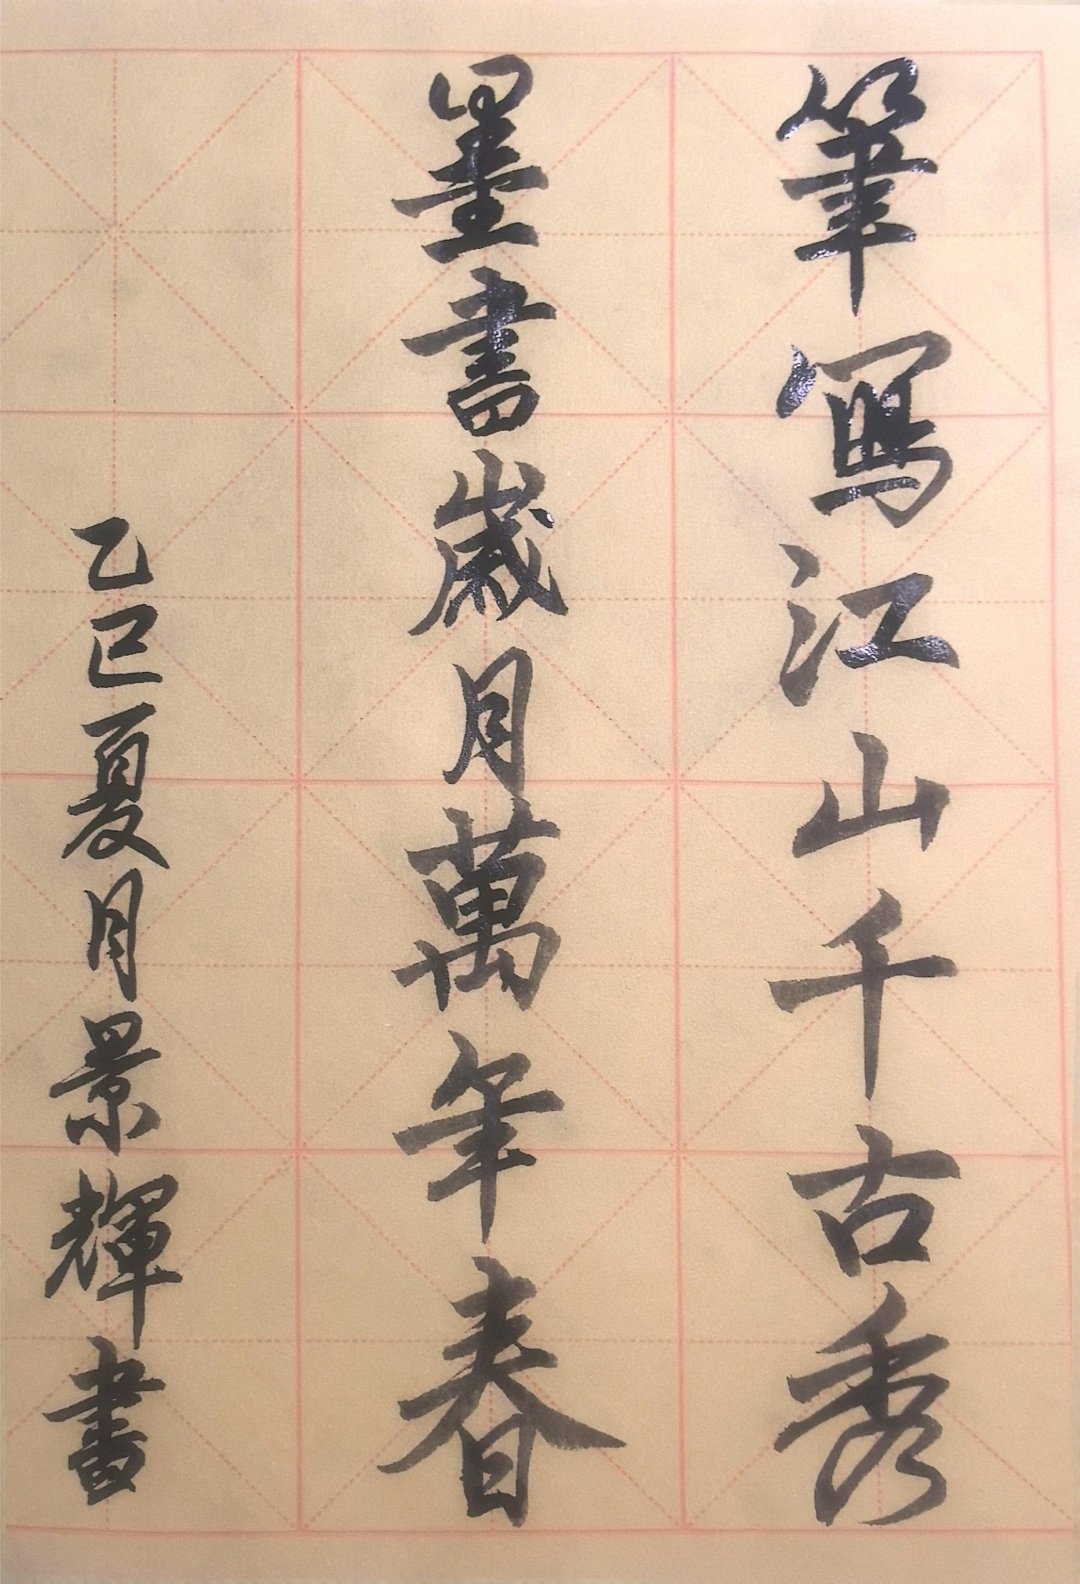 筆寫江山千古秀
墨書歲月萬年春
乙巳夏月景輝書